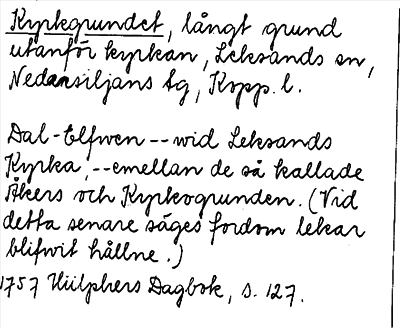 Kyrkgrundet, långt grund
utanför kyrkan, Leksands sn,
Nedansiljans tg, Kopp. l.
Dal-Elfwen -- wid Leksands
Kyrka, -- emellan de så kallade
Åkers och Kyrkogrunden. (Vid
detta senare säges fordom lekar
blifwit hållne.)
1757 Hülphers Dagbok, s. 127.